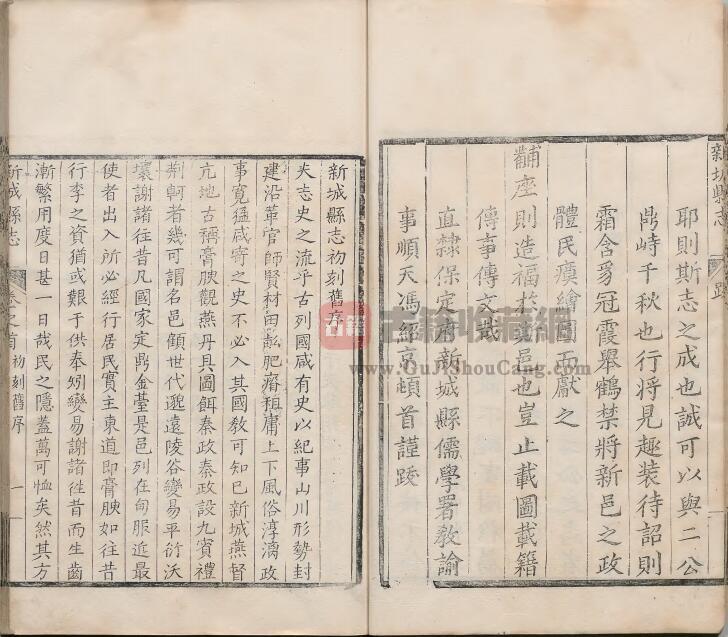 耶則斯志之成也誠可以與二公
鼎峙千秋也行將見趣裝待詔則
霜含豸冠霞舉鶴禁將新邑之政
體民瘼繪圖而獻之
黼座則造福於新邑也豈止載圖載籍
傳事傳文哉
直隸保定府新城縣儒學署教諭
事順天馮紹京頓首謹跋
新城縣志初刻舊序
夫志史之流乎古列國咸有史以紀事山川形勢封
建沿革官師賢材田賦肥瘠租庸上下風俗淳漓政
事寬猛咸寄之史不必入其國敎可知已新城燕督
亢地古稱膏腴觀燕丹具圖餌秦政秦政設九賓禮
荆軻者幾可謂名邑顧世代邈遠陵谷變易平衍沃
壤謝諸往昔凡國家定鼎金臺是邑列在甸服近最
使者出入所必經行居民實主東道即膏腴如往昔
行李之資猶或艱于供奉矧變易謝諸往昔而生齒
漸繁用度日甚一日哉民之隱蓋萬可恤矣然其方
新城縣志
卷之首
初刻舊序
一
新城縣志
跋
古籍
古籍收藏網
www.GuJiShouCang.com